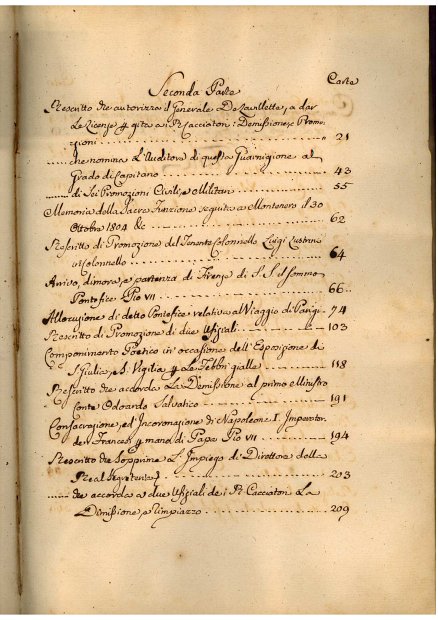 Carte
Seconda Parte
Rescritto che autorizza il Generale De Lavillette, a dar
Le Licenze p gita a i R Cacciatori: Demissioni, e Promo-
zioni 21
che nomina L'Auditore di questa Guarnigione al
Grado di Capitano 43
di Sei Promozioni Civili, e Militari 55
Memoria della Sacra Funzione seguita a Montenero il 30
Ottobre 1804 &c 62
Rescritto di Promozione del Tenente Colonnello Luigi
a Colonnello 64
Arrivo, dimora, e partenza di Firenze di S. S. il Sommo
Pontefice Pio VII 66
Allocuzione di detto Pontefice relativa al Viaggio di Parigi 74
Rescritto di Promozione di due Ufiziali 103
Componimento Poetico in occasione dell'Esposizione di
S Giulia, e S. Vigilia p Le Febbri gialle 118
Rescritto che accorda La Demissione al primo Ministro
Conte Odoardo Salvatico 191
Consacrazione, ed Incoronazione di Napoleone I. Imperator
de Francesi p mano di Papa Pio VII 194
Rescritto che Sopprime L'Impiego di Direttore della
Real Segreteria 203
che accorda a due Ufiziali de i R Cacciatori La
Demissione, e rimpiazzo 209